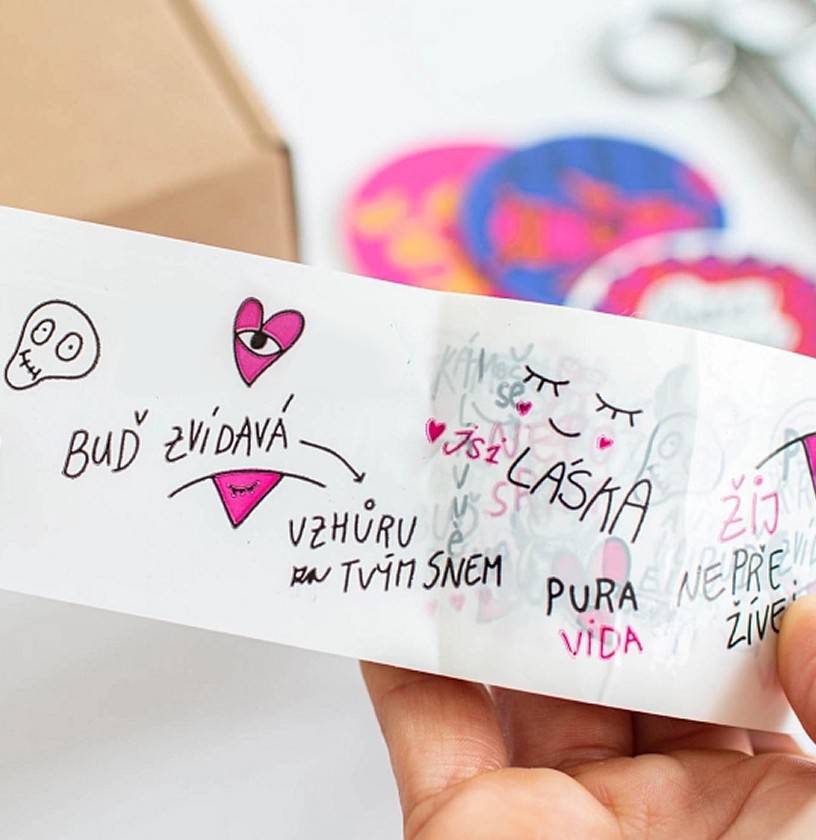 BUĎ ZVÍDAVÁ
VZHŮRU
ZA TVÝM SNEM
jsi
LÁSKA
PURA
ViDA
Žij
NEPŘE
ŽÍVEj